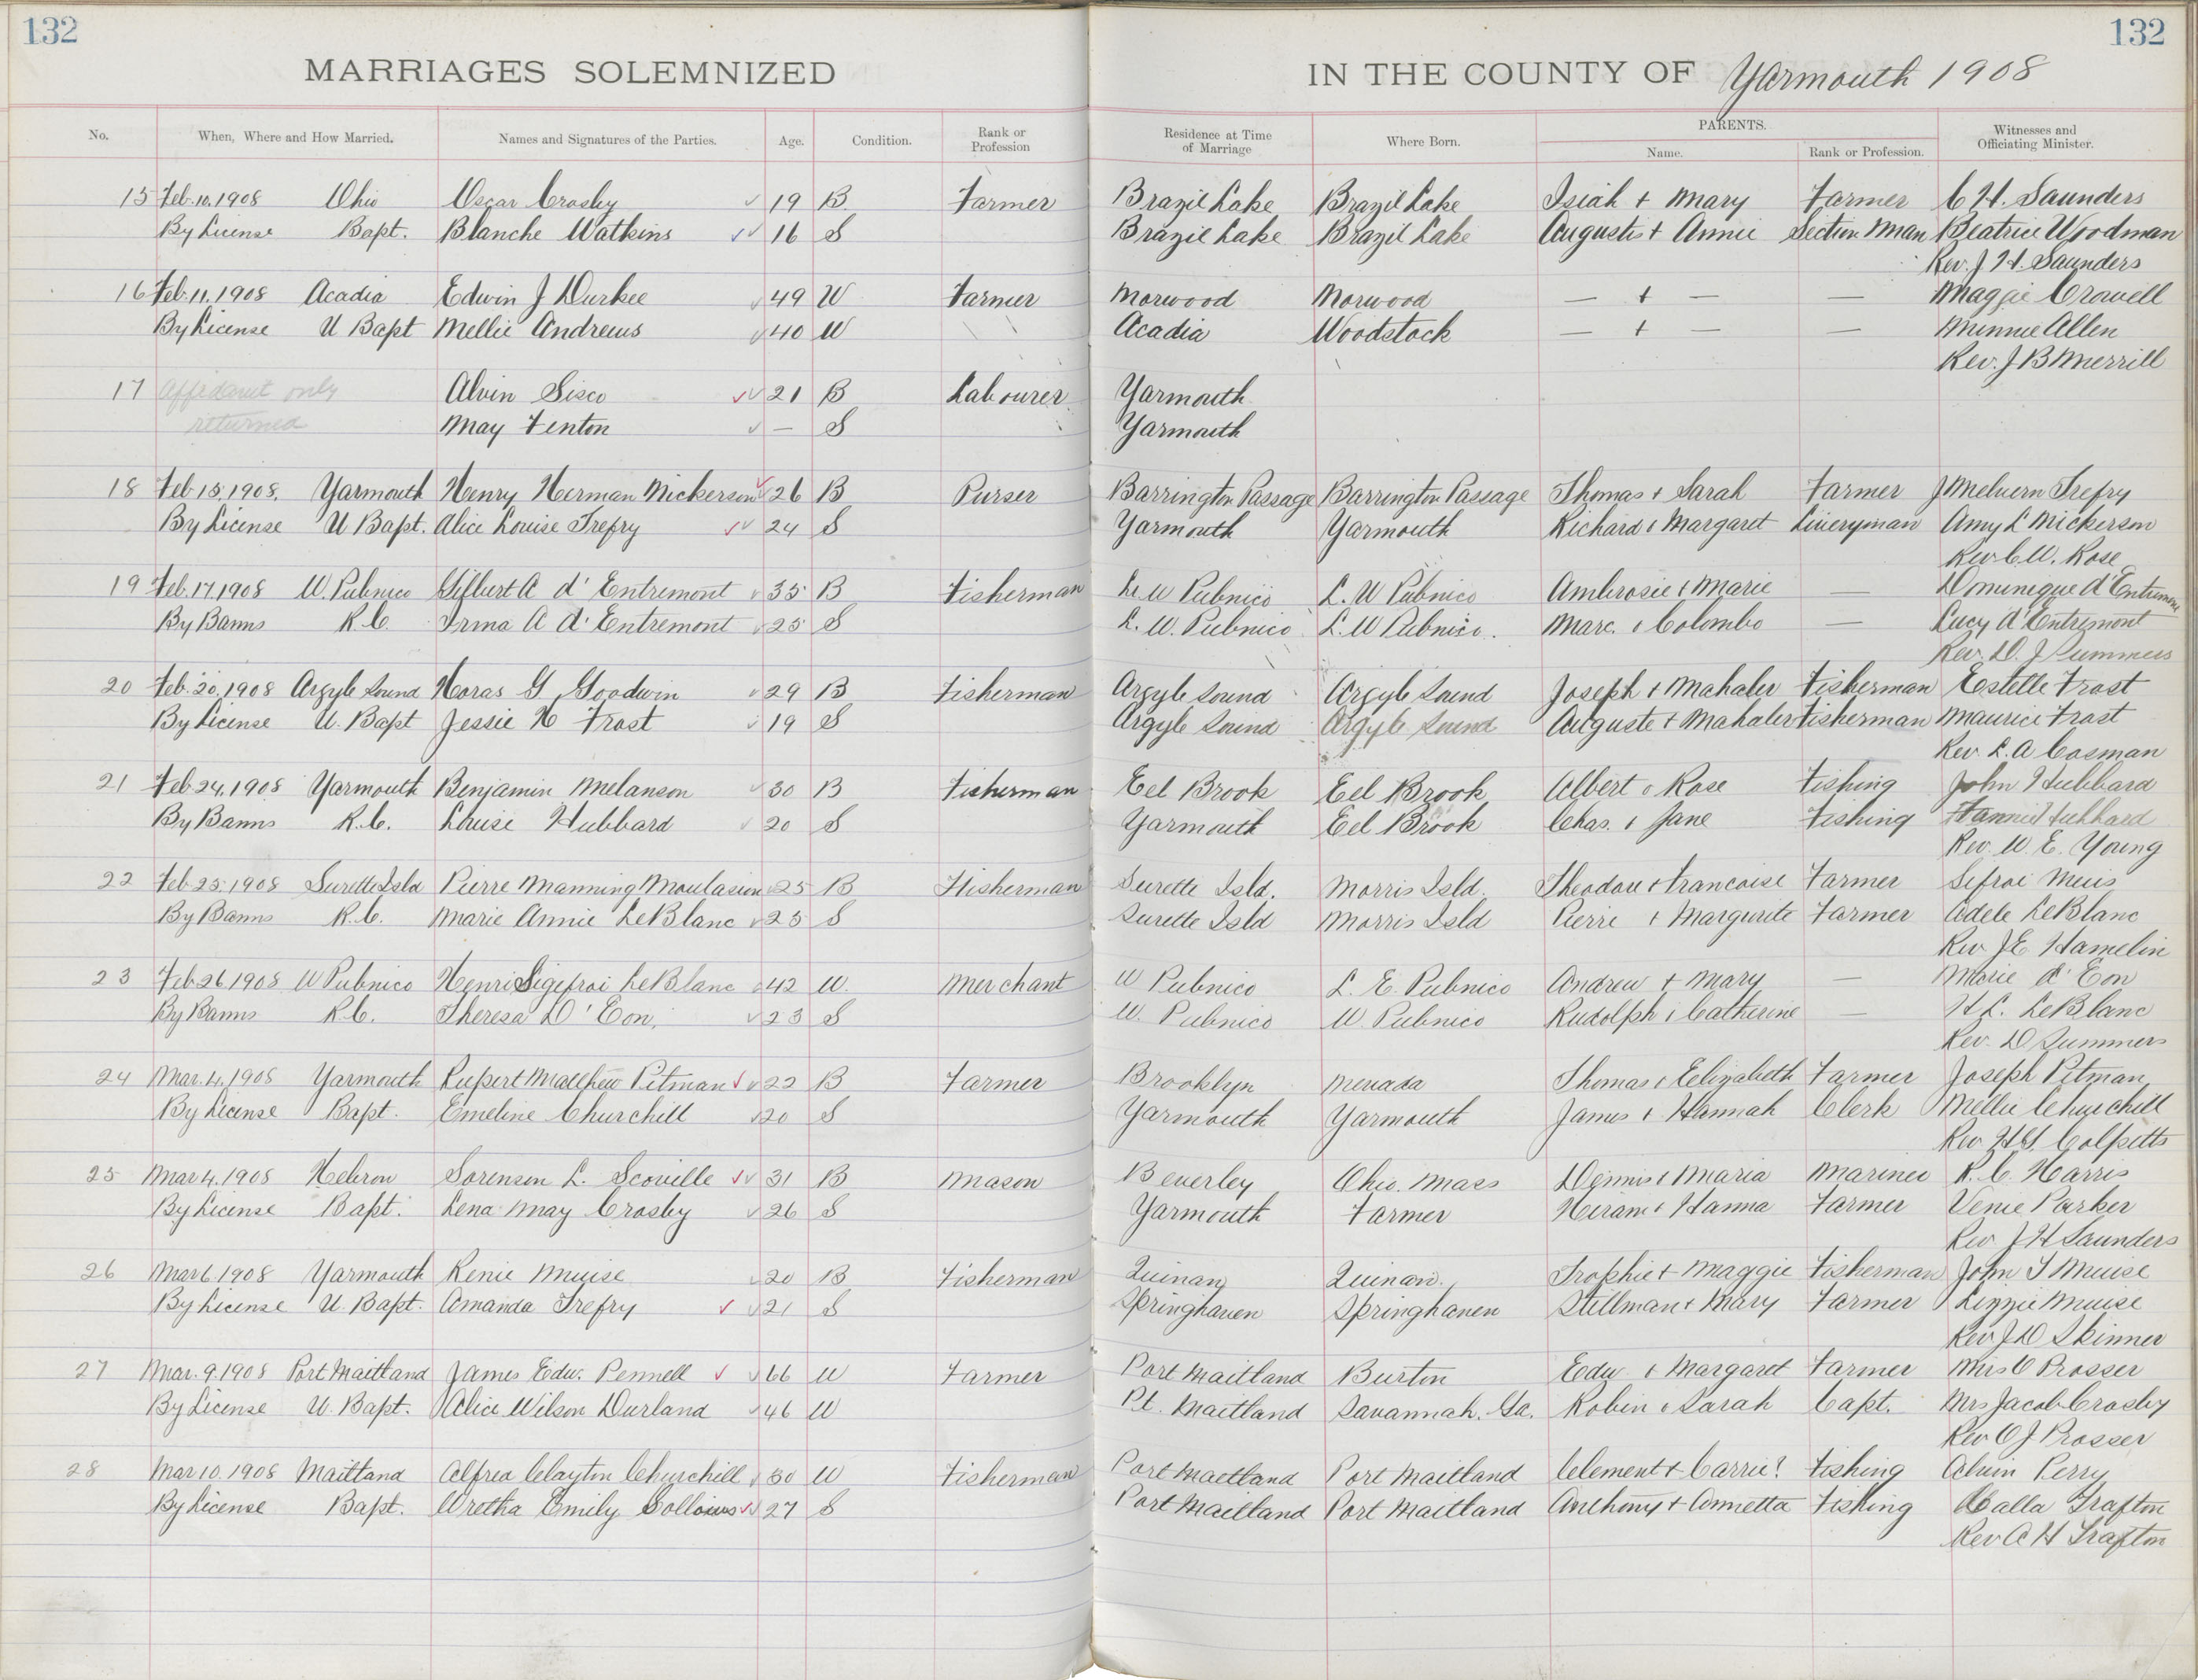 132 132
MARRIAGES SOLEMNIZED IN THE COUNTY OF Yarmouth 1908
No. When, Where and How Married. Names and Signatures of the Parties. Age. Condition. Rank or Profession Residence at Time of Marriage Where Born. PARENTS. Name. Rank or Profession. Witnesses and Officiating Minister.
15 Feb. 10, 1908 Ohio Oscar Crosby 19 B Farmer Brazil Lake Brazil Lake Isiah + Mary Farmer C H. Saunders
By License Bapt. Blanche Watkins 16 S Brazil Lake Brazil Lake Augusts + Annie Section Man Beatrice Woodman
Rev. J H. Saunders
16 Feb. 11. 1908 Acadia Edwin J Durkee 49 W Farmer Norwood Norwood — + — — Maggie Crowell
By License U Bapt Mellie Andrews 40 W Acadia Woodstock — + — — Minnie Allen
Rev. J B Merrill
17 Affidavit only Alvin Sisco 21 B Labourer Yarmouth
returned May Fenton — S Yarmouth
18 Feb 15. 1908. Yarmouth Henry Herman Nickerson 26 B Purser Barrington Passage Barrington Passage Thomas + Sarah Farmer J Melvern Trefry
By License U Bapt. Alice Louise Trefry 24 S Yarmouth Yarmouth Richard + Margaret Liveryman Amy L Nickerson
Rev C W. Rose
19 Feb. 17, 1908 W. Pubnico Gilbert A d'Entremont 35 B Fisherman L. W Pubnico L. W Pubnico Ambrosie + Marie — Domineque d'Entremont
By Banns R. C. Irma A d'Entremont 25 S L. W. Pubnico L. W Pubnico. Marc. + Colombo — Lucy d'Entremont
Rev. D. J Summers
20 Feb. 20, 1908 Argyle Sound Horas G Goodwin 29 B Fisherman Argyle Sound Argyle Sound Joseph + Mahaler Fisherman Estelle Frost
By License U. Bapt Jessie H Frost 19 S Argyle Sound Argyle Sound Auguste + Mahaler Fisherman Maurice Frost
Rev. L. A Cosman
21 Feb 24, 1908 Yarmouth Benjamin Melanson 30 B Fisherman Eel Brook Eel Brook Albert + Rose Fishing John Hubbard
By Banns R. C. Louise Hubbard 20 S Yarmouth Eel Brook Chas. + Jane Fishing Fannie Hubbard
Rev. W. E. Young
22 Feb 25. 1908 Surette Isld Pierre Manning Moulasion 25 B Fisherman Surette Isld. Morris Isld. Theodore + Francoise Farmer Sifroi Muis
By Banns R. C. Marie Annie LeBlanc 25 S Surette Isld Morris Isld Pierre + Margurite Farmer Adele LeBlanc
Rev J E Hamelin
23 Feb 26 1908 W Pubnico Henri Sigefroi LeBlanc 42 W. Merchant W Pubnico L. E. Pubnico Andrew + Mary — Marie d'Eon
By Banns R. C. Theresa D'Eon, 23 S W. Pubnico W. Pubnico Rudolph + Catherine — H L. LeBlanc
Rev. D Summers
24 Mar. 4. 1908 Yarmouth Rupert Matthew Pitman 22 B Farmer Brooklyn Nevada Thomas + Elizabeth Farmer Joseph Pitman
By License Bapt. Emeline Churchill 20 S Yarmouth Yarmouth James + Hannah Clerk Mellie Churchill
Rev H G. Colpitts
25 Mar 4. 1908 Hebron Sorenson L. Scoville 31 B Mason Beverley Ohio. Mass Dennis + Maria Mariner R. C. Harris
By License Bapt. Lena May Crosby 26 S Yarmouth Farmer Hiram + Hanna Farmer Venie Parker
Rev J H Saunders
26 Mar 6. 1908 Yarmouth Renie Muise 20 B Fisherman Quinan Quinan. Trophie + Maggie Fisherman John T Muise
By License U. Bapt. Amanda Trefry 21 S Springhaven Springhaven Stillman + Mary Farmer Lizzie Muise
Rev J D Skinner
27 Mar. 9. 1908 Port Maitland James Edw. Pennell 66 W Farmer Port Maitland Burton Edw + Margaret Farmer Mrs C Prosser
By License U. Bapt. Alice Wilson Durland 46 W Pt. Maitland Savannah. Ga. Robin + Sarah Capt. Mrs Jacob Crosby
Rev C J Prosser
28 Mar 10. 1908 Maitland Alfred Clayton Churchill 30 W Fisherman Port Maitland Port Maitland Clement + Carrie? Fishing Alvin Perry
By License Bapt. Uretha Emily Sollows 27 S Port Maitland Port Maitland Anthony + Annetta Fishing Trafton
Rev A H Trafton